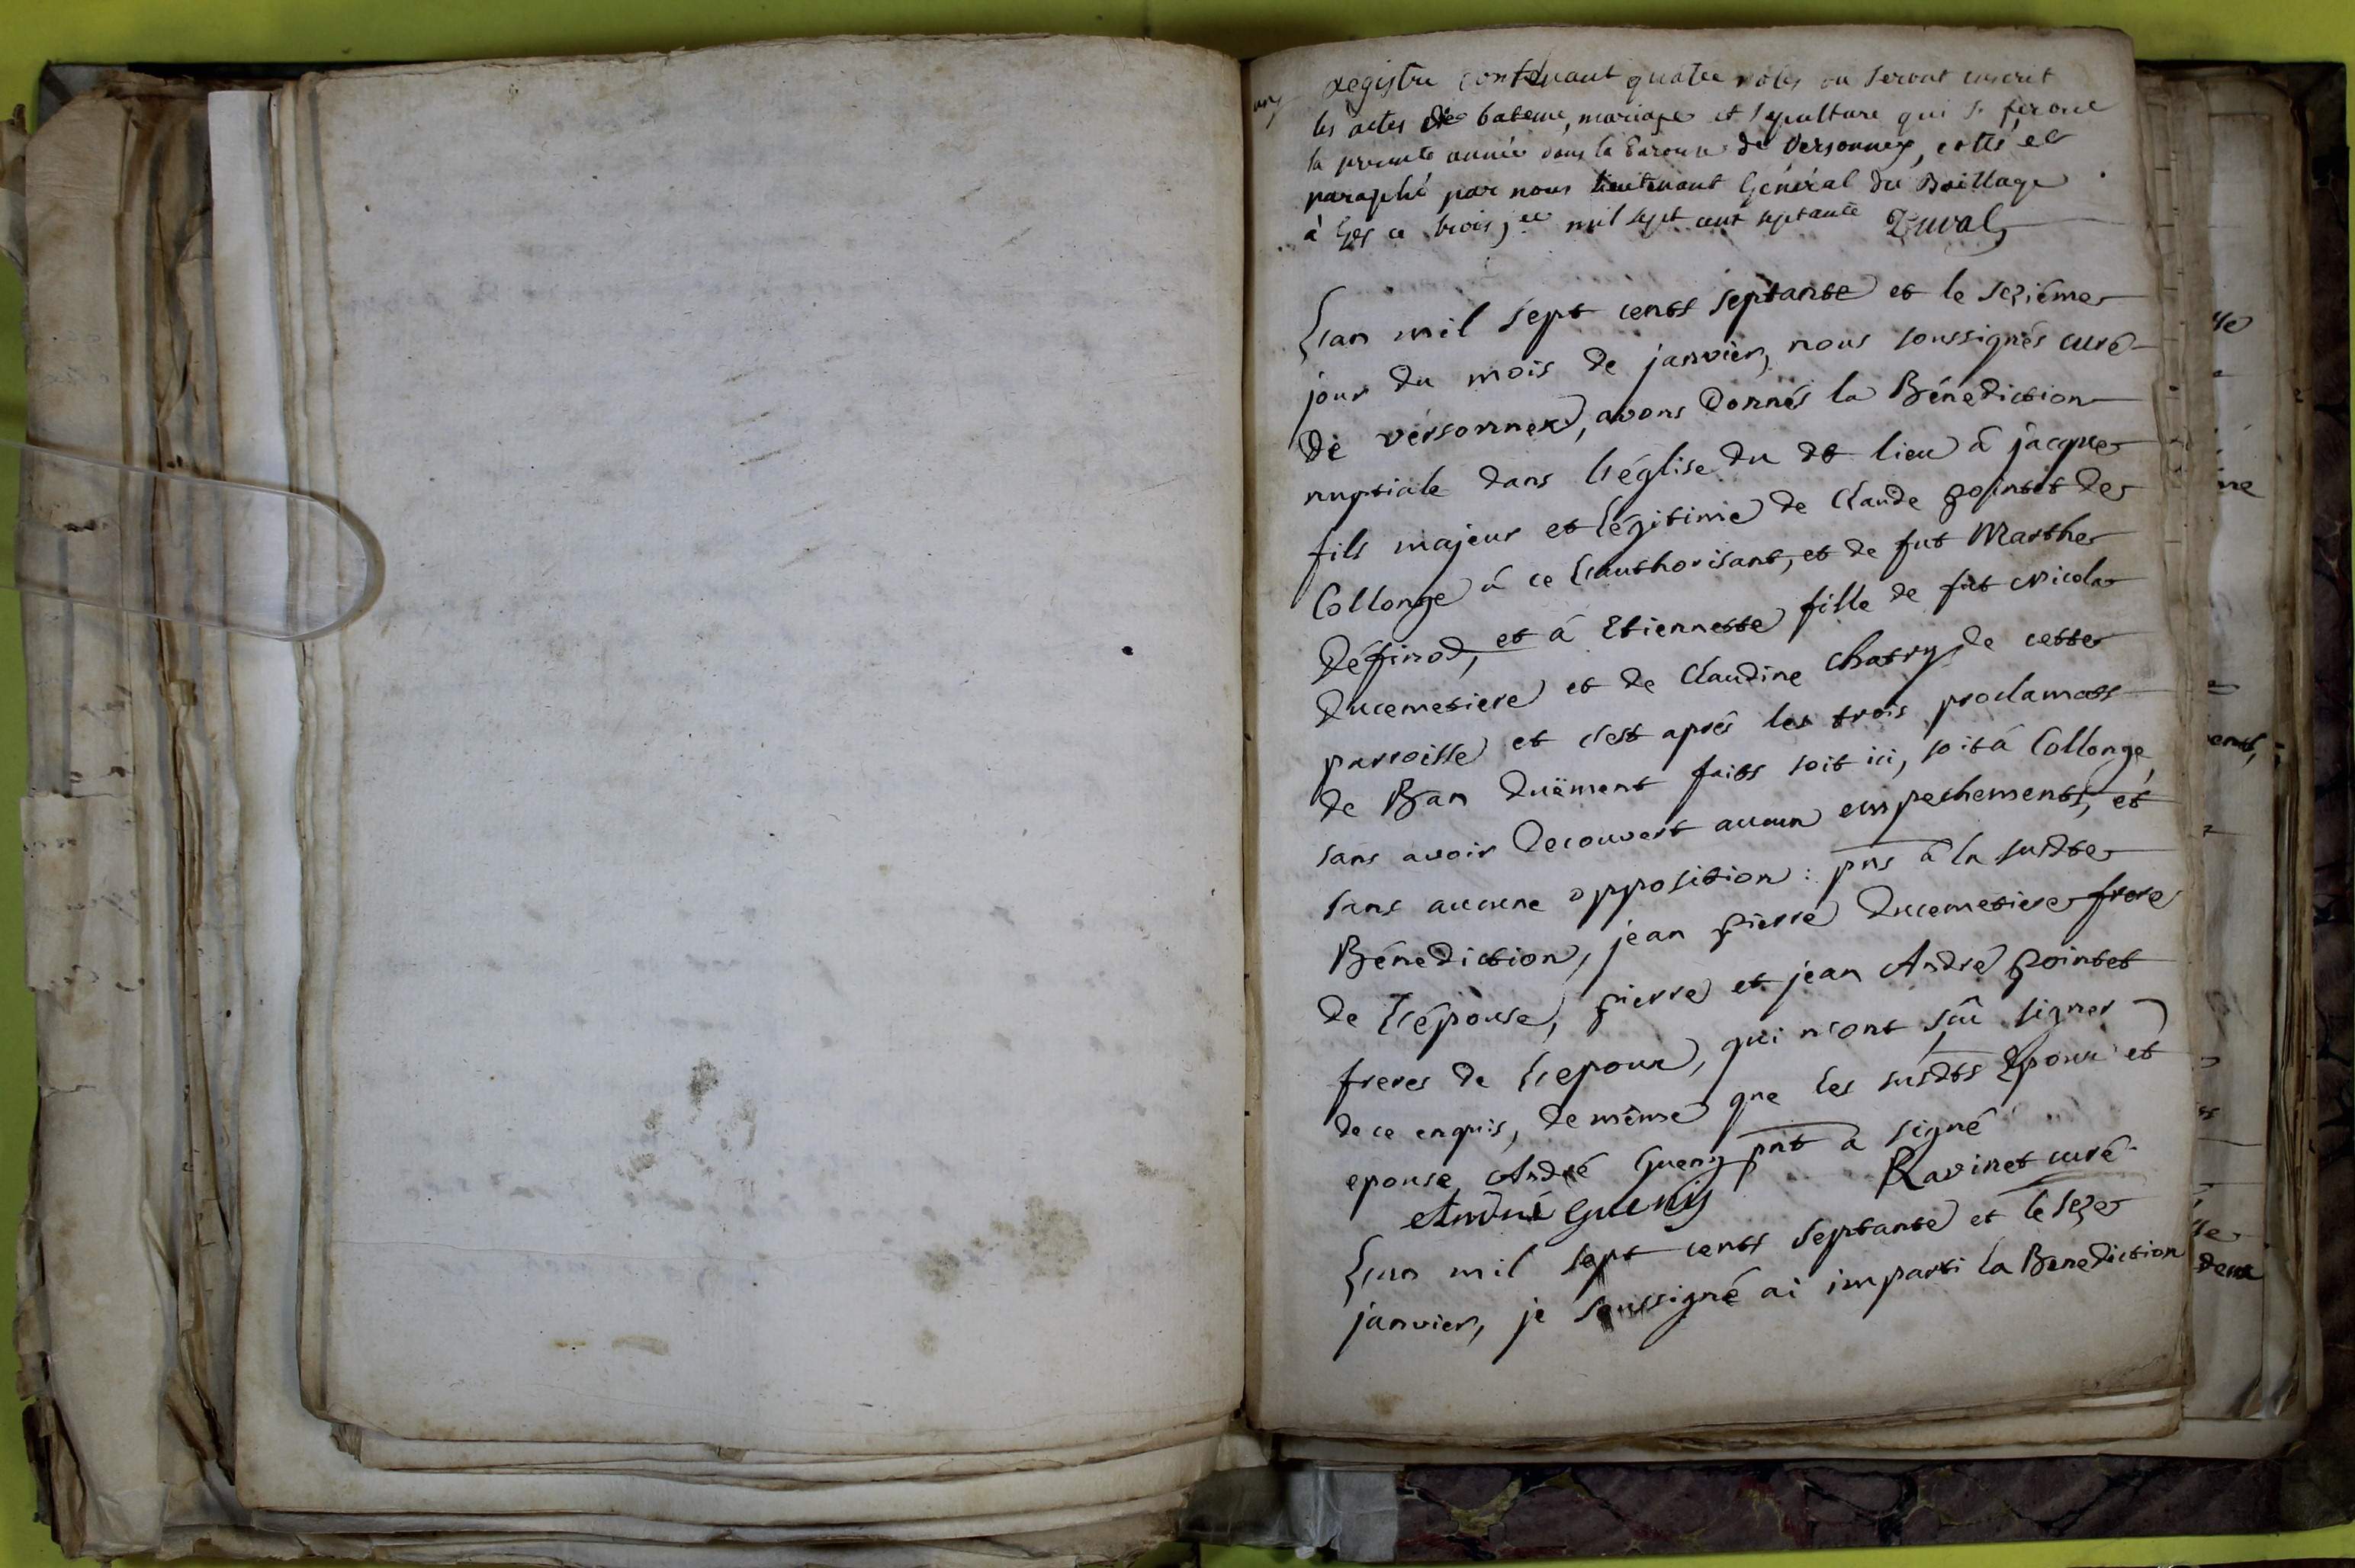 Registre contenant quatre roles ou seront inscrit
les actes de bateme, mariage et sepulture qui se feront
la presente année dans la Paroisse de Versonnex, cotté et
paraphé par nous lieutenant Général du Baillage
à Gex ce trois j.er mil sept cent septante Duval
L'an mil sept cents septante et le sezième
jour du mois de janvier, nous soussignés curé
de versonnex, avons donnés la Bénédiction
nuptiale dans l'église du dt lieu à jacque
fils majeur et légitime de Claude pointet de
Collonge à ce l'authorisant, et de fut Marthe
Définod, et à Etiennette fille de fut Nicola
Ducemetiere et de Claudine Chatry de cette
parroisse et c'est aprés les trois proclamats
de Ban duëment faits soit ici, soit à Collonge,
sans avoir decouvert aucun empechements, et
sans aucune opposition : pns à la susdte
Bénédiction, jean pierre Ducemetiere frere
de l'épouse, pierre et jean André pointet
freres de l'epoux, qui n'ont sçû signer
de ce enquis, de même que les susdts Epoux et
epouse, André Gueny pnt a signé
André Gueny Ravinet curé
L'an mil sept cents septante et le seze
janvier, je soussigné ai imparti la Benediction